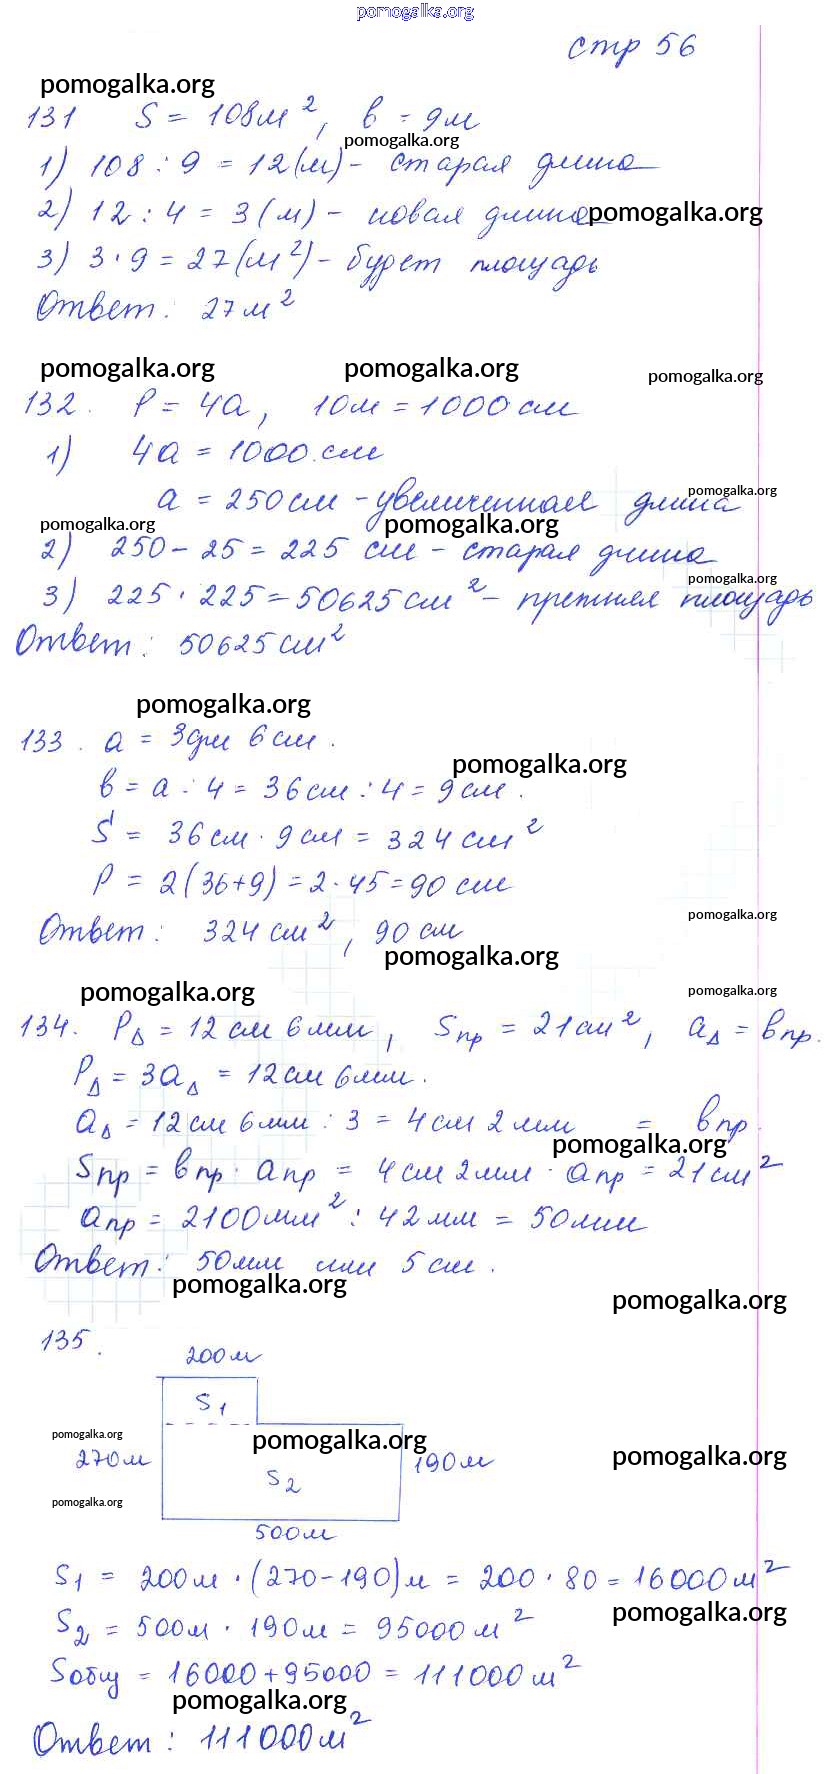 pomogalka.org
стр 56
pomogalka.org
131 S = 108 м², в = 9м
pomogalka.org
1) 108 : 9 = 12 (м) - старая длина
2) 12 : 4 = 3 (м) - новая длина pomogalka.org
3) 3 · 9 = 27 (м²) - будет площадь
Ответ: 27 м²
pomogalka.org pomogalka.org pomogalka.org
132. P = 4a, 10м = 1000 см
1) 4a = 1000 см
pomogalka.org
a = 250 см - увеличенная длина
pomogalka.org pomogalka.org
2) 250 - 25 = 225 см - старая длина
pomogalka.org
3) 225 · 225 = 50625 см² - прежняя площадь
Ответ: 50625 см²
pomogalka.org
133. a = 3дм 6 см.
pomogalka.org
в = a : 4 = 36 см : 4 = 9 см.
S = 36 см · 9 см = 324 см²
P = 2(36+9) = 2 · 45 = 90 см
pomogalka.org
Ответ: 324 см², 90 см
pomogalka.org
pomogalka.org pomogalka.org
134. PΔ = 12 см 6 мм, Sпр = 21 см², aΔ = впр.
PΔ = 3aΔ = 12 см 6 мм.
aΔ = 12 см 6 мм : 3 = 4 см 2 мм = впр.
pomogalka.org
Sпр = впр · aпр = 4 см 2 мм · aпр = 21 см²
aпр = 2100 мм² : 42 мм = 50 мм
Ответ: 50 мм или 5 см.
pomogalka.org pomogalka.org
135.
200 м
S1
pomogalka.org pomogalka.org pomogalka.org
270 м 190 м
S2
pomogalka.org
500 м
S1 = 200 м · (270-190) м = 200 · 80 = 16000 м²
pomogalka.org
S2 = 500 м · 190 м = 95000 м²
Sобщ = 16000 + 95000 = 111000 м²
pomogalka.org
Ответ: 111000 м²